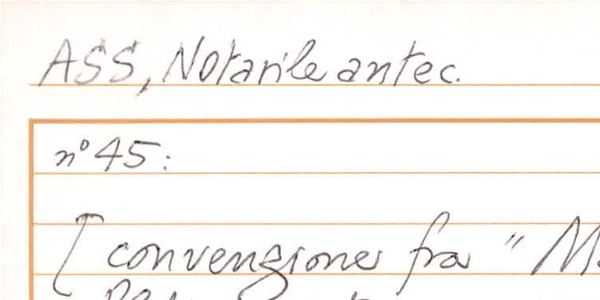 ASS, Notarile antec.
n° 45:
[ convenzione fra "